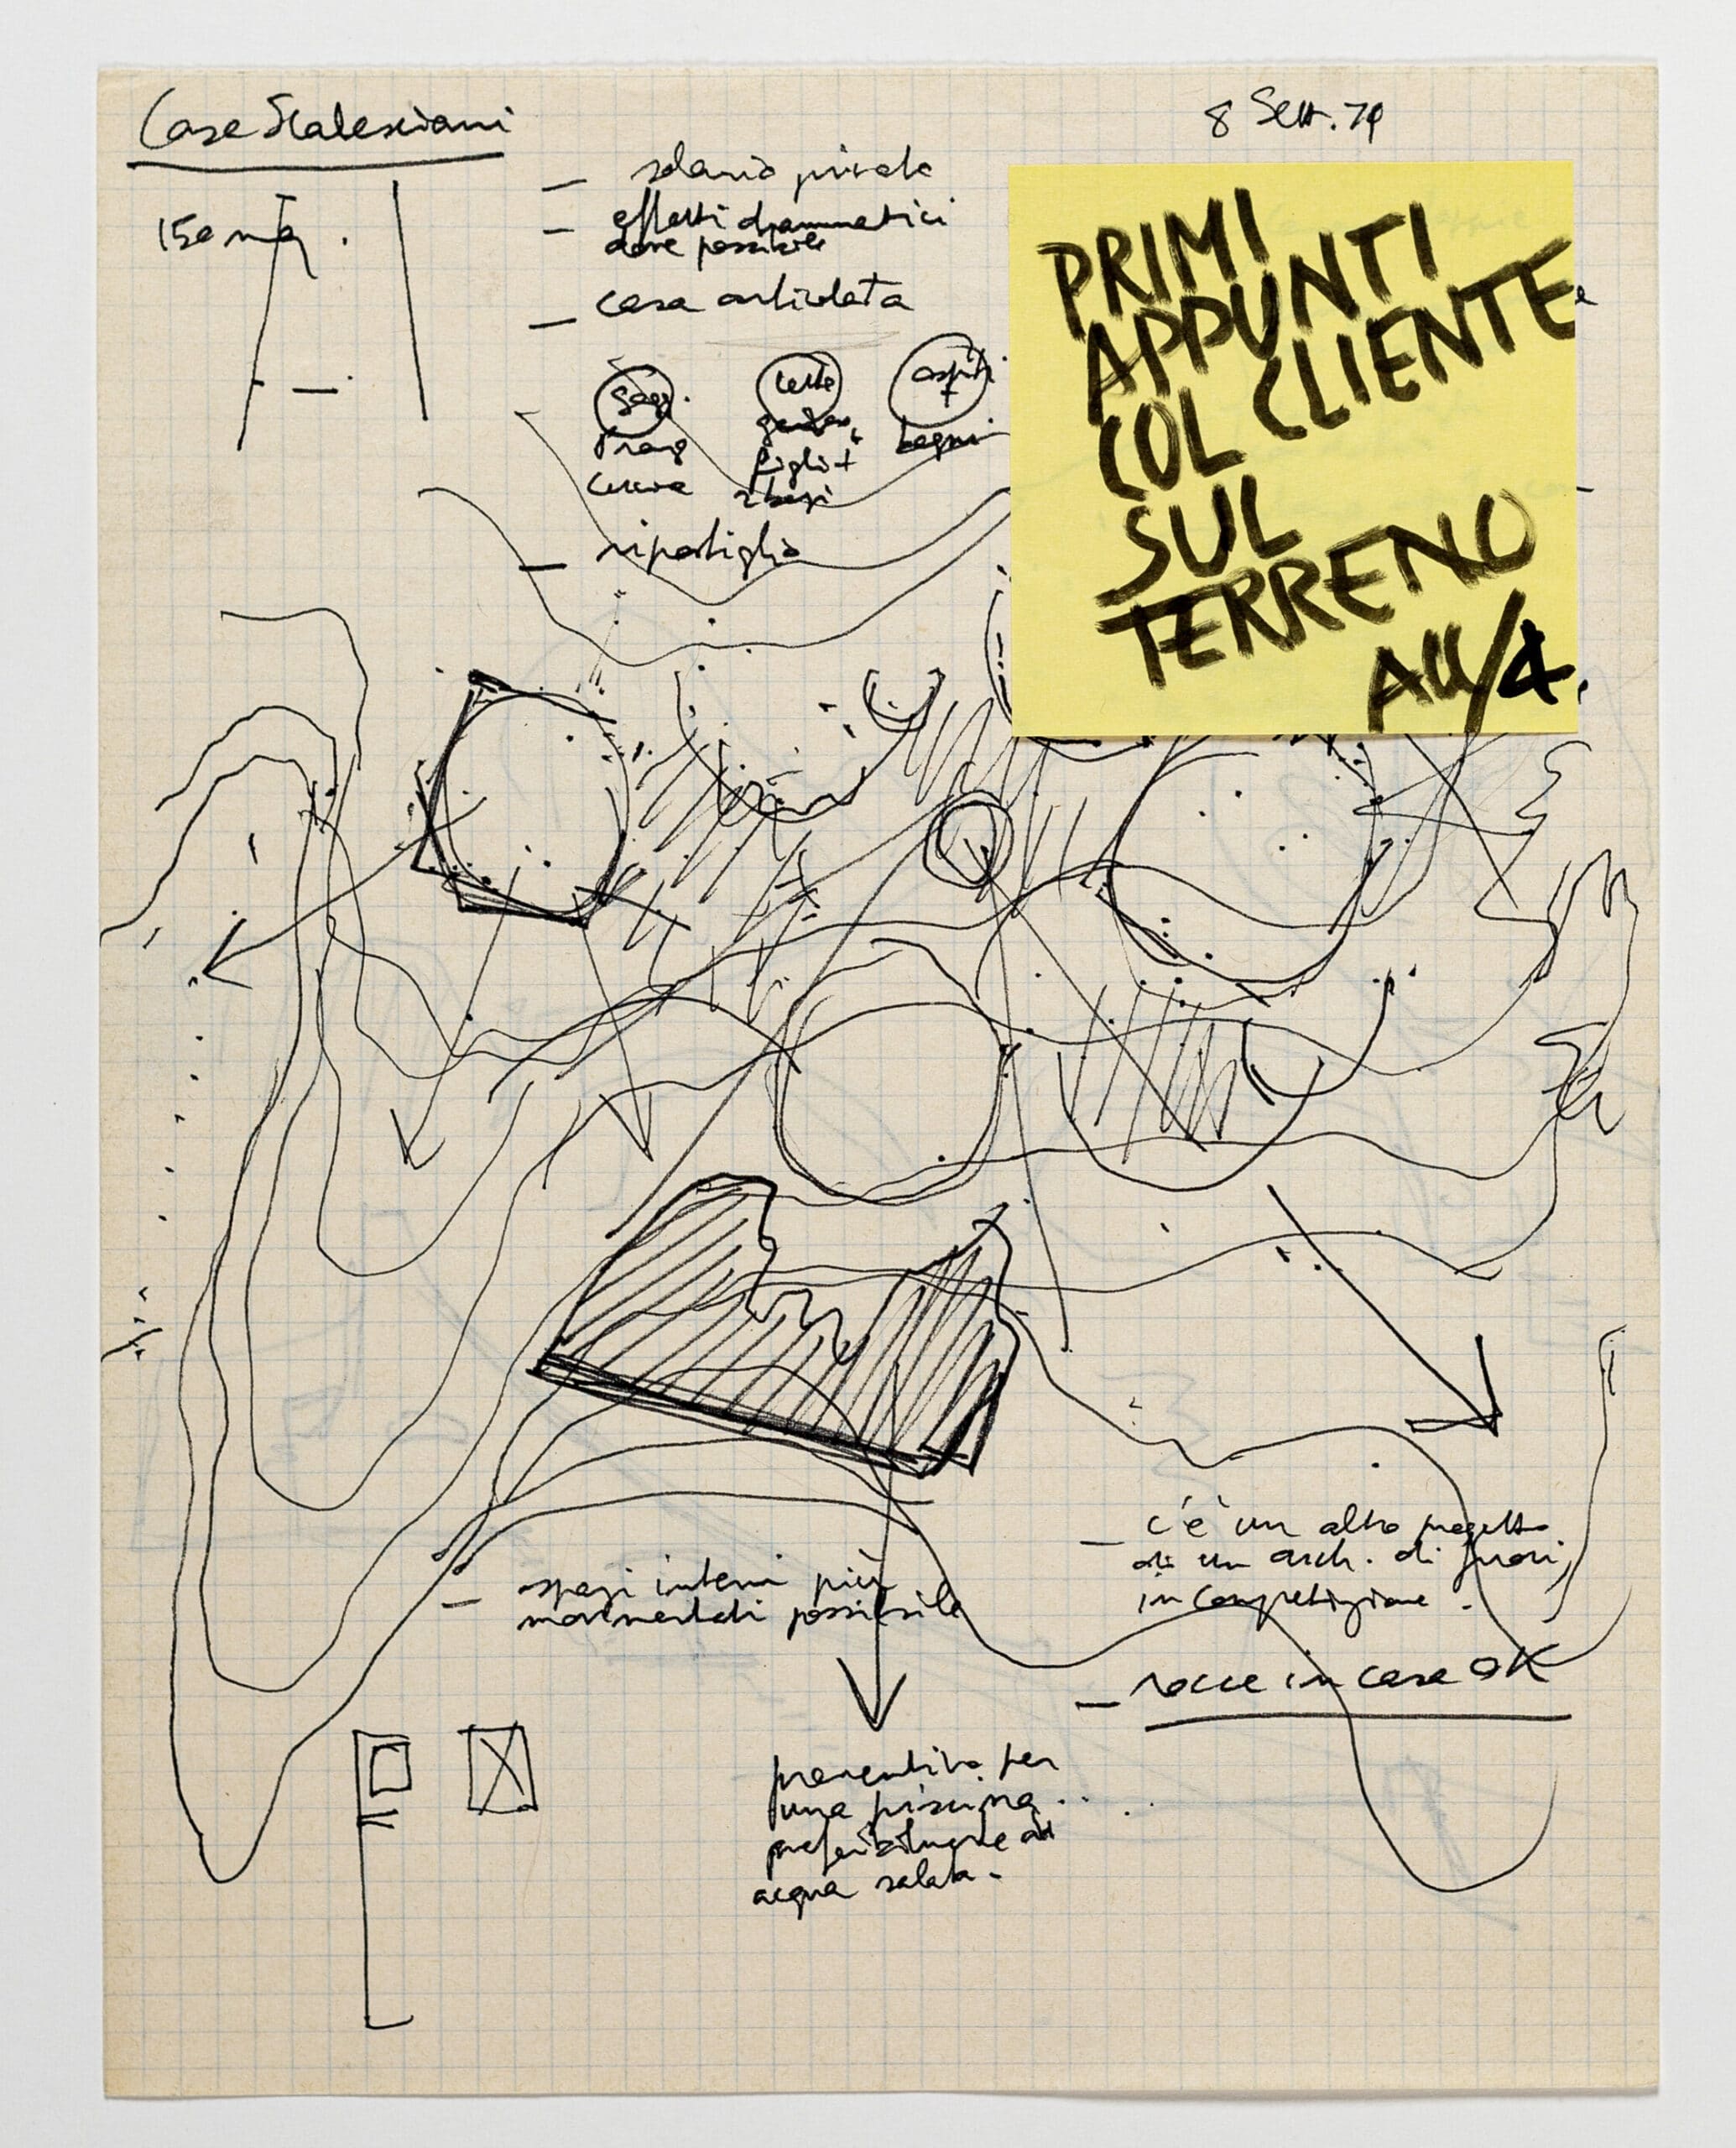 Case Scalesciani
8 Sett. 79
150 mq.
— solario privato
— effetti drammatici
dove possibile
— casa articolata
Sogg. letto ospiti
Pranz genitori, +
Cucina figli + bagni
2 bagni
— ripostiglio
PRIMI
APPUNTI
COL CLIENTE
SUL
TERRENO
All/4
— spazi interni più
movimentati possibile
— c'è un altro progetto
di un arch. di fuori,
in competizione.
— rocce in casa OK
preventivo per
una piscina..
preferibilmente ad
acqua salata -